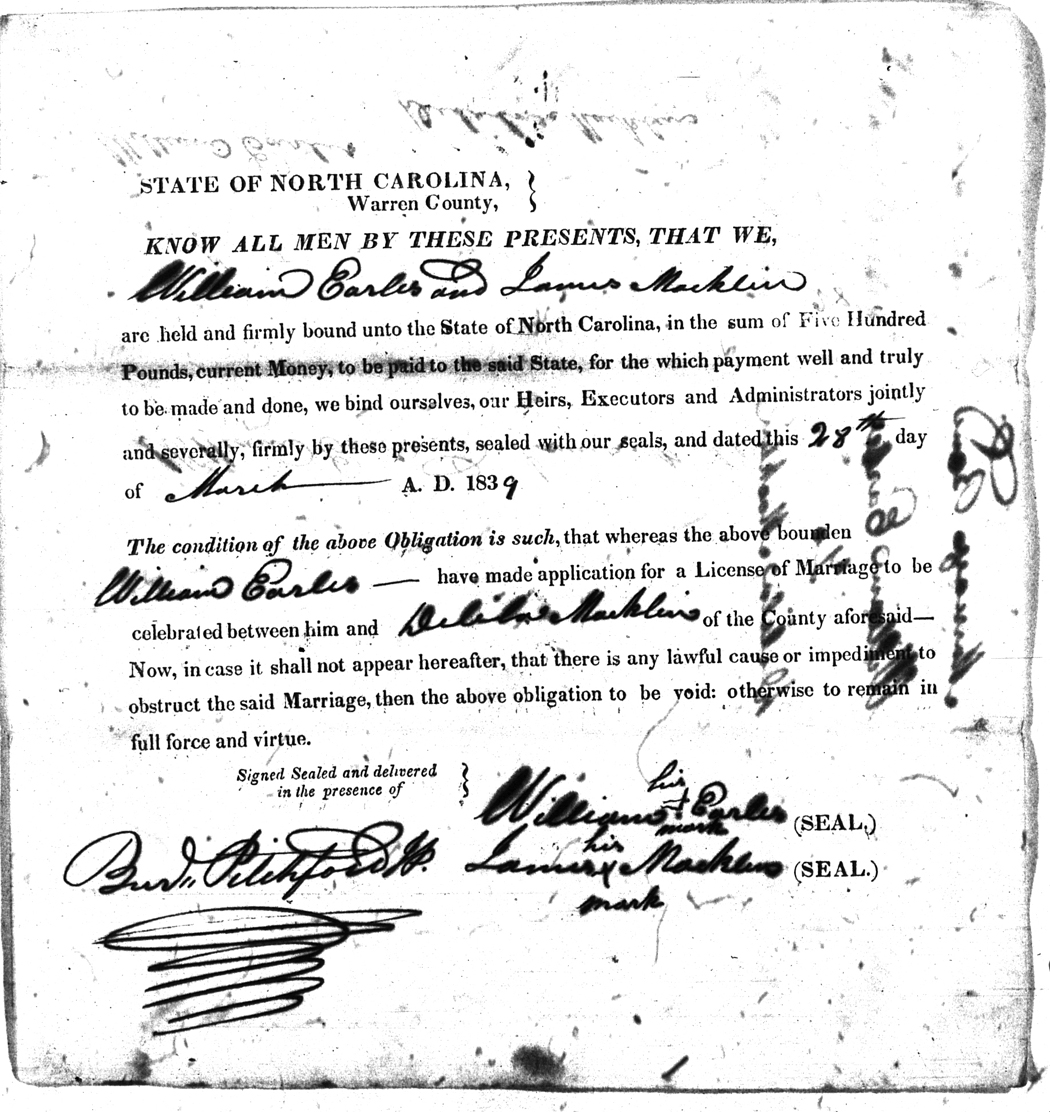 STATE OF NORTH CAROLINA,
Warren County,
KNOW ALL MEN BY THESE PRESENTS, THAT WE,
William Earles and James Macklin
are held and firmly bound unto the State of North Carolina, in the sum of Five Hundred
Pounds, current Money, to be paid to the said State, for the which payment well and truly
to be made and done, we bind ourselves, our Heirs, Executors and Administrators jointly
and severally, firmly by these presents, sealed with our seals, and dated this 28th day
of March A. D. 1839
The condition of the above Obligation is such, that whereas the above bounden
William Earles — have made application for a License of Marriage to be
celebrated between him and Delila Macklin of the County aforesaid—
Now, in case it shall not appear hereafter, that there is any lawful cause or impediment to
obstruct the said Marriage, then the above obligation to be void: otherwise to remain in
full force and virtue.
Signed Sealed and delivered
in the presence of
his
William + Earles (SEAL.)
mark
his
James x Macklin (SEAL.)
mark
Pitchford